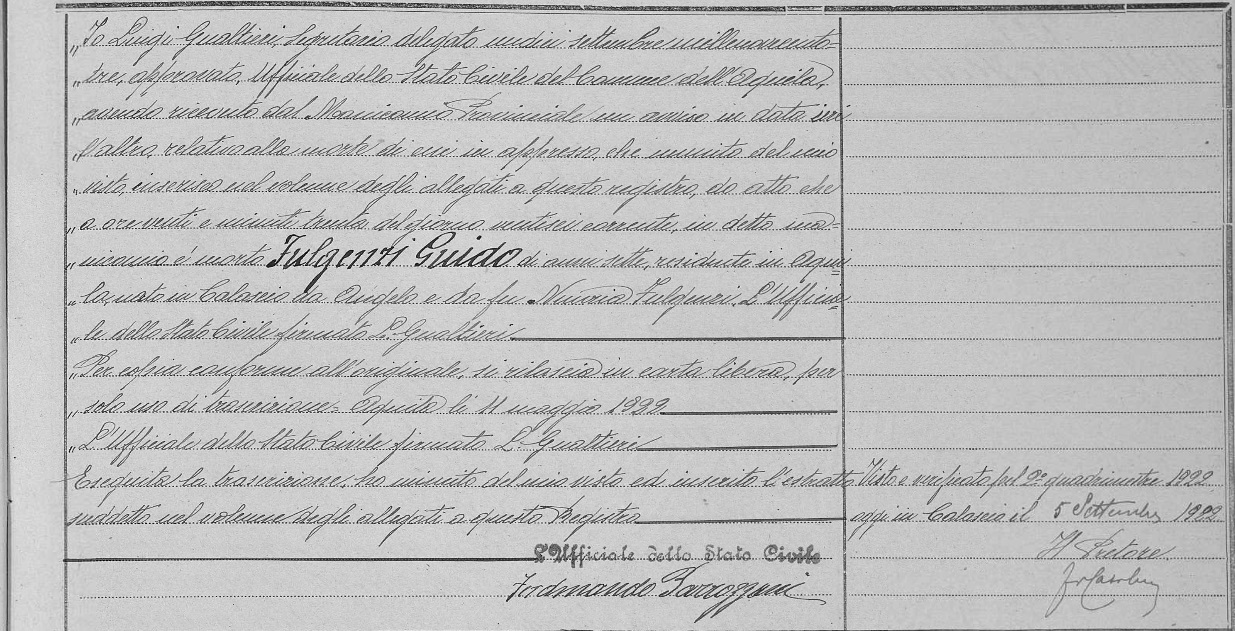 „Io Luigi Gualtieri, Segretario delegato undici settembre millenovecento-
„tre, approvato, Ufficiale dello Stato Civile del Comune dell'Aquila,
„avendo ricevuto dal Manicomio Provinciale un avviso in data ieri
„l'altro, relativo alla morte di cui in appresso, che munito del mio
„visto, inserisco nel volume degli allegati a questo registro, do atto che
„a ore venti e minuti trenta del giorno ventisei corrente, in detto ma=
„nicomio è morto Fulgenzi Guido di anni sette, residente in Aqui=
„la, nato in Calascio da Angelo e da fu Nunzia Fulgenzi. L'Ufficia=
„le dello Stato Civile firmato L. Gualtieri
„Per copia conforme all'originale, si rilascia in carta libera, per
„solo uso di trascrizione= Aquila li 11 maggio 1922
„L'Ufficiale dello Stato Civile firmato L. Gualtieri
Eseguita la trascrizione, ho munito del mio visto ed inserito l'estratto
suddetto nel volume degli allegati a questo Registro
L'Ufficiale dello Stato Civile
Ferdinando
Visto e verificato pel 2º quadrimestre 1922,
oggi in Calascio il 5 Settembre 1922
Il Pretore